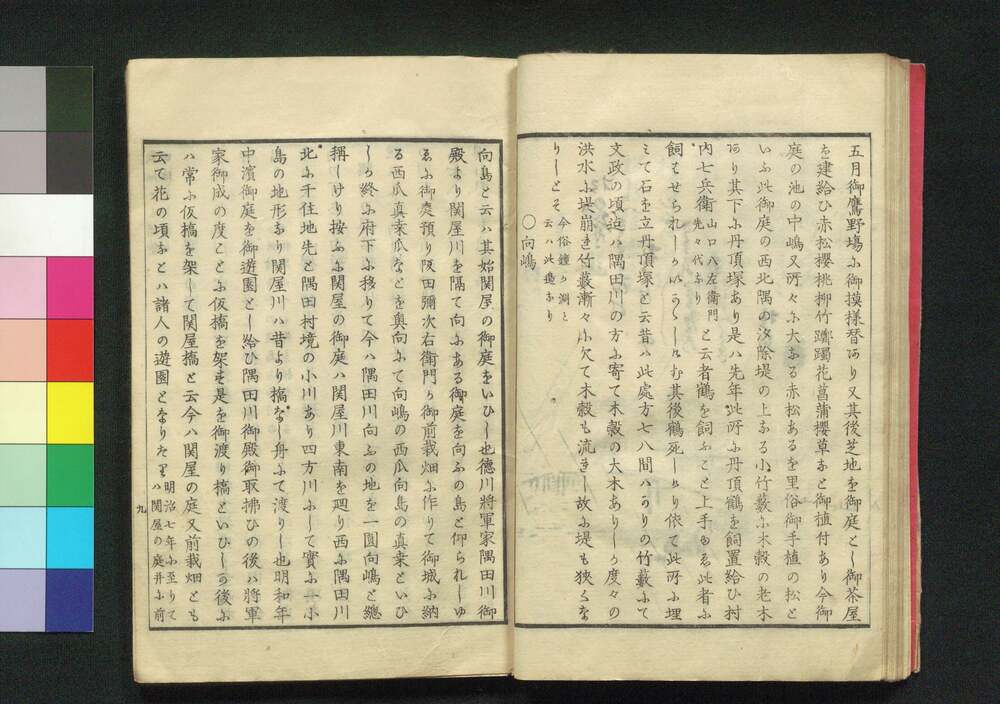 五月御鷹野塲ふ御摸様替ありり又其後芝地を御庭とし御茶屋
を建給ひ赤松櫻桃柳竹躑躅花菖蒲櫻草あと御植付あり今御
庭の池の中嶋又所々ふ大ある赤松あるを里俗御手植の松と
いふ此御庭の西北隅の汐除堤の上ある小竹藪ふ木穀の老木
あり其下ふ丹頂塚あり是ハ先年此所ふ丹頂鶴を飼置給ひ村
内七兵衛山口八左衛門先々代あり と云者鶴を飼ふこと上手ゆゑ此者ふ
飼もせられしかいくくしけむ其後鶴死しけり依て此所ふ埋
ミて石を立丹頂塚と云昔ハ此處方七八間ハかりの竹藪ふて
文政の頃迠ハ隅田川の方ふ寄て木穀の大木ありしか度々の
洪水ふ堤崩き竹藪漸々ふ欠て木穀も流きし故ふ堤も狹くな
りしとそ今俗鐘か淵と云ハ此邉あり
〇向嶋
向島と云ハ其始関屋の御庭をいひし也德川將軍家隅田川御
殿より関屋川を隔て向ふある御庭を向ふの島と仰られしゆ
ゑふ御庭預り阪田彌次右衛門か御前栽畑ふ作りて御城ふ納
る西瓜真桒瓜なとを奥向ふて向嶋の西瓜向島の真桒といひ
しか終ふ府下ふ移りて今ハ隅田川向ふの地を一圓向嶋と總
稱しけり按ふふ関屋の御庭ハ関屋川東南を廻り西ふ隅田川
北ふ千住地先と隅田村境の小川あり四方川ふして實ふ一小
島の地形あり関屋川ハ昔より搞なし舟ふて渡りし也明和年
中濱御庭を御遊園とし給ひ隅田川御殿御取拂ひの後ハ將軍
家御成の度ことふ仮搞を架す是を御渡り搞といひしか後ふ
ハ常ふ仮搞を架して関屋搞と云今ハ関屋の庭又前栽畑とも
云て花の頃あとハ諸人の遊園となりたり明治七年ふ至りてハ関屋の庭并ふ前
九